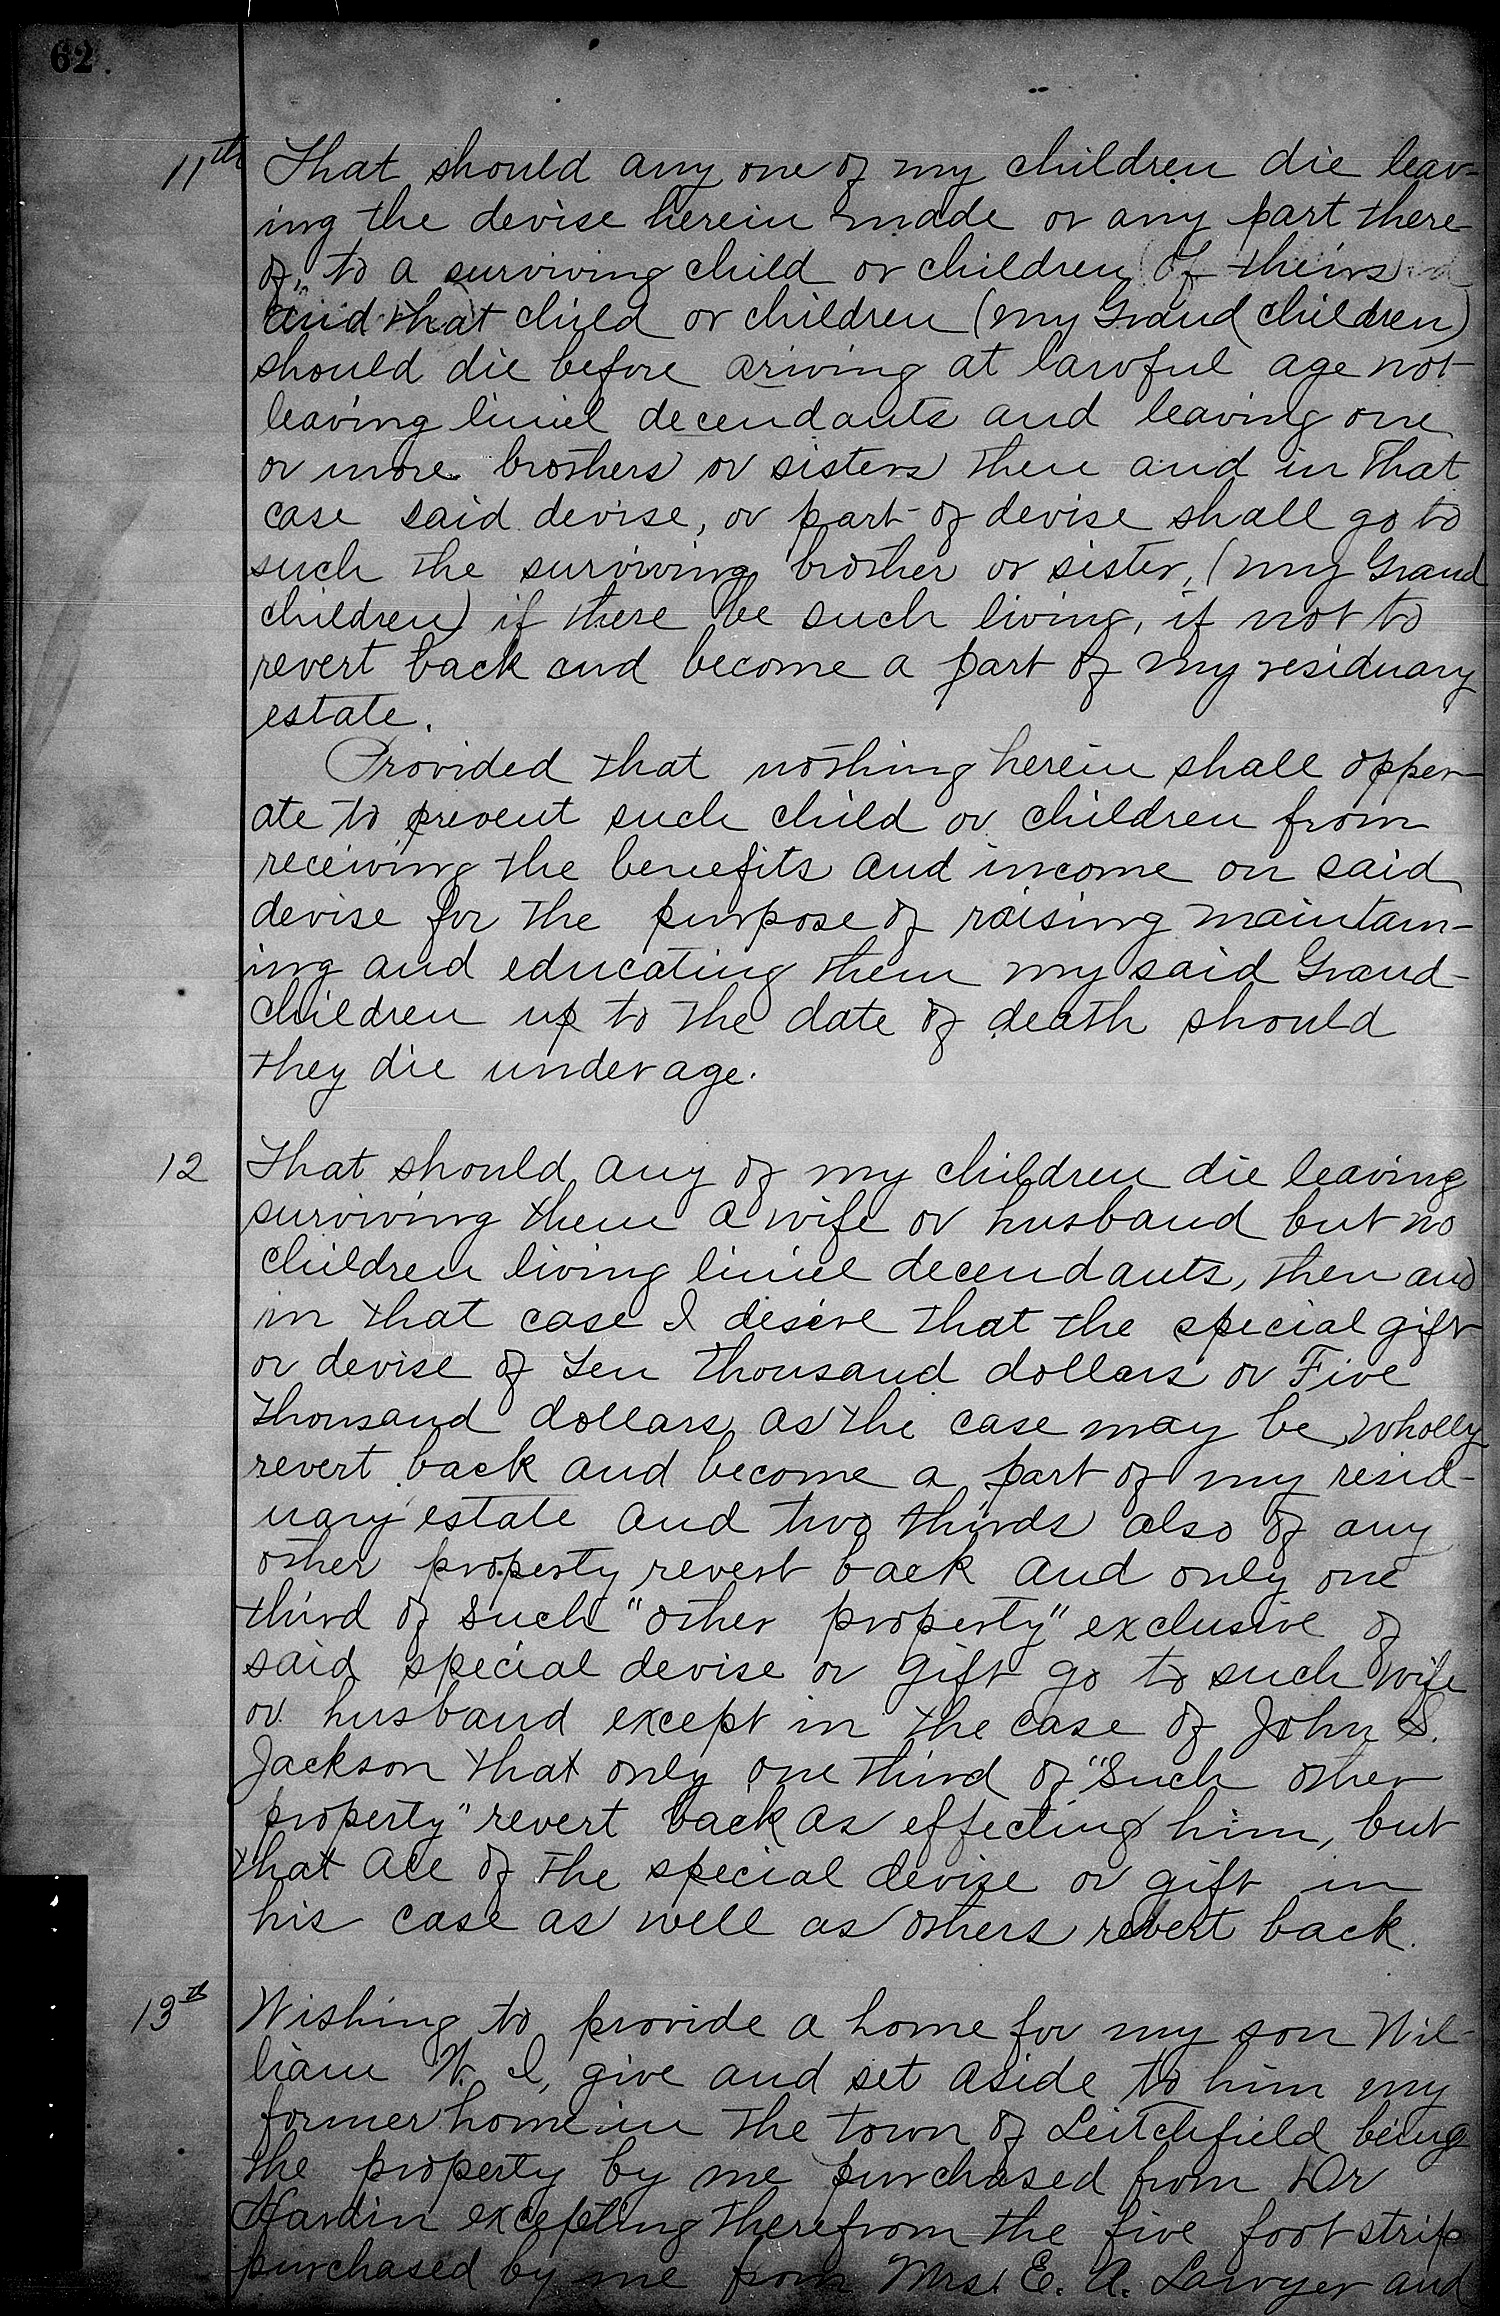 62.
11th That should any one of my children die leav-
ing the devise herein made or any part there
of, to a surviving child or children of theirs
and that child or children (my Grand children)
should die before ariving at lawful age not
leaving liniel decendants and leaving one
or more brothers or sisters then and in that
case said devise, or part of devise shall go to
such the surviving brother or sister, (my Grand
children) if there be such living, if not to
revert back and become a part of my residuary
estate.
Provided that nothing herein shall opper-
ate to prevent such child or children from
receiving the benefits and income on said
devise for the purpose of raising maintain-
ing and educating them my said Grand-
children up to the date of death should
they die under age.
12 That should any of my children die leaving
surviving them a wife or husband but no
children living liniel decendants, then and
in that case I desire that the special gift
or devise of Ten thousand dollars or Five
thousand dollars as the case may be, wholly
revert back and become a part of my resid-
uary estate and two thirds also of any
other property revert back and only one
third of such "other property" exclusive of
said special devise or gift go to such wife
or husband except in the case of John S.
Jackson that only one third of "such other
property" revert back as effecting him, but
that all of the special devise or gift in
his case as well as others revert back.
13th Wishing to provide a home for my son Wil-
liam W. I, give and set aside to him my
former home in the town of Leitchfield being
the property by me purchased from Dr
Hardin excepting therefrom the five foot strip
purchased by me from Mrs. E. A. Lawyer and